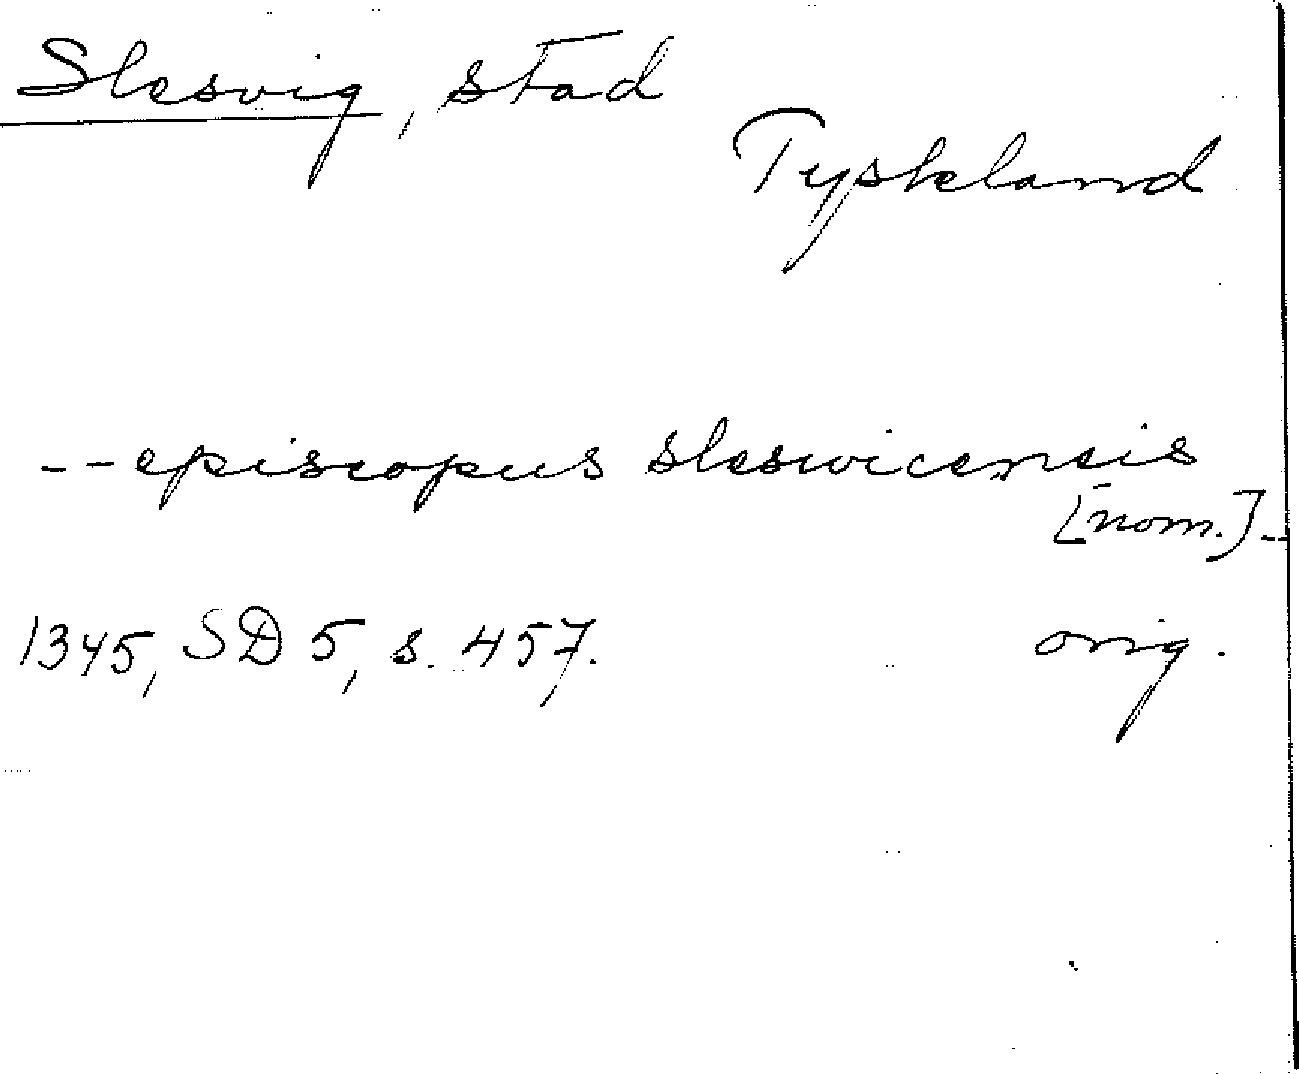 Slesvig, stad
Tyskland
--episcopus sleswicensis
[nom.]--
1345, SD 5, s. 457.
orig.